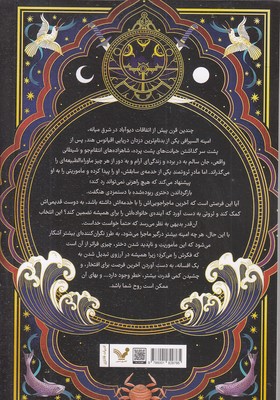 چندین قرن پیش از اتفاقات دیوآباد در شرق میانه،
امینه السیرافی یکی از بدنام‌ترین دزدان دریایی اقیانوس هند، پس از
پشت سر گذاشتن خیانت‌های پشت پرده، شاهزاده‌های انتقام‌جو و شیطانی
واقعی، جان سالم به در برده و زندگی‌ای آرام و به دور از هر چیز ماوراءالطبیعه‌ای را
می‌گذراند. اما مادر ثروتمند یکی از خدمه‌ی سابقش، او را پیدا کرده و مأموریتی را به او
پیشنهاد می‌کند که هیچ راهزنی نمی‌تواند رد کند؛
بازگرداندن دختری ربوده‌شده با دستمزدی هنگفت.
این یک فرصتی است که آخرین ماجراجویی‌اش را با خدمه‌اش داشته باشد، به دوست قدیمی‌اش
کمک کند و ثروتی به دست آورد که آینده‌ی خانواده‌اش را برای همیشه تضمین کند؟ این انتخاب
آن‌قدر بدیهی به نظر می‌رسد که حتما خواست خداست.
با این حال، هر چه امینه بیشتر درگیر ماجرا می‌شود، به طرز نگران‌کننده‌ای بیشتر آشکار
می‌شود که این مأموریت و ناپدید شدن دختر، چیزی فراتر از آن است
که فکرش را می‌کرد؛ زیرا همیشه در آرزوی تبدیل شدن به
یک افسانه، به دست آوردن آخرین فرصت برای افتخار، و
چشیدن کمی قدرت بیشتر، خطر وجود دارد... و بهای آن
ممکن است روح شما باشد.